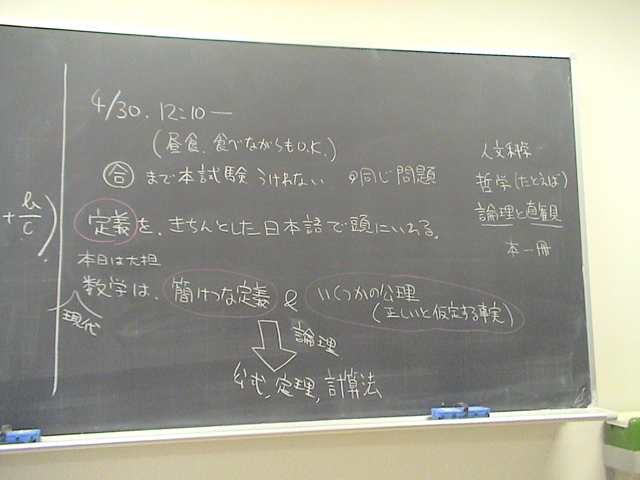 4/30. 12:10 —
(昼食、食べながらもO.K.)
合 まで本試験うけれない の同じ問題
定義を、きちんとした日本語で頭にいれる。
本日は大担
数学は、簡けつな定義 & いくつかの公理
(正しいと仮定する事実)
現代
論理
公式, 定理, 計算法
人文科学
哲学(たとえば)
論理と直観
本一冊
+ b/c )